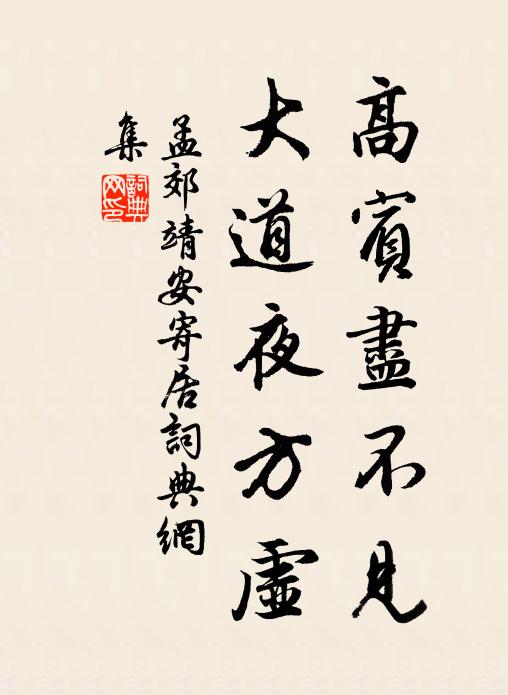 高賓盡不見
大道夜方虛
孟郊靖安寄居詞典網
集
詞典
网印